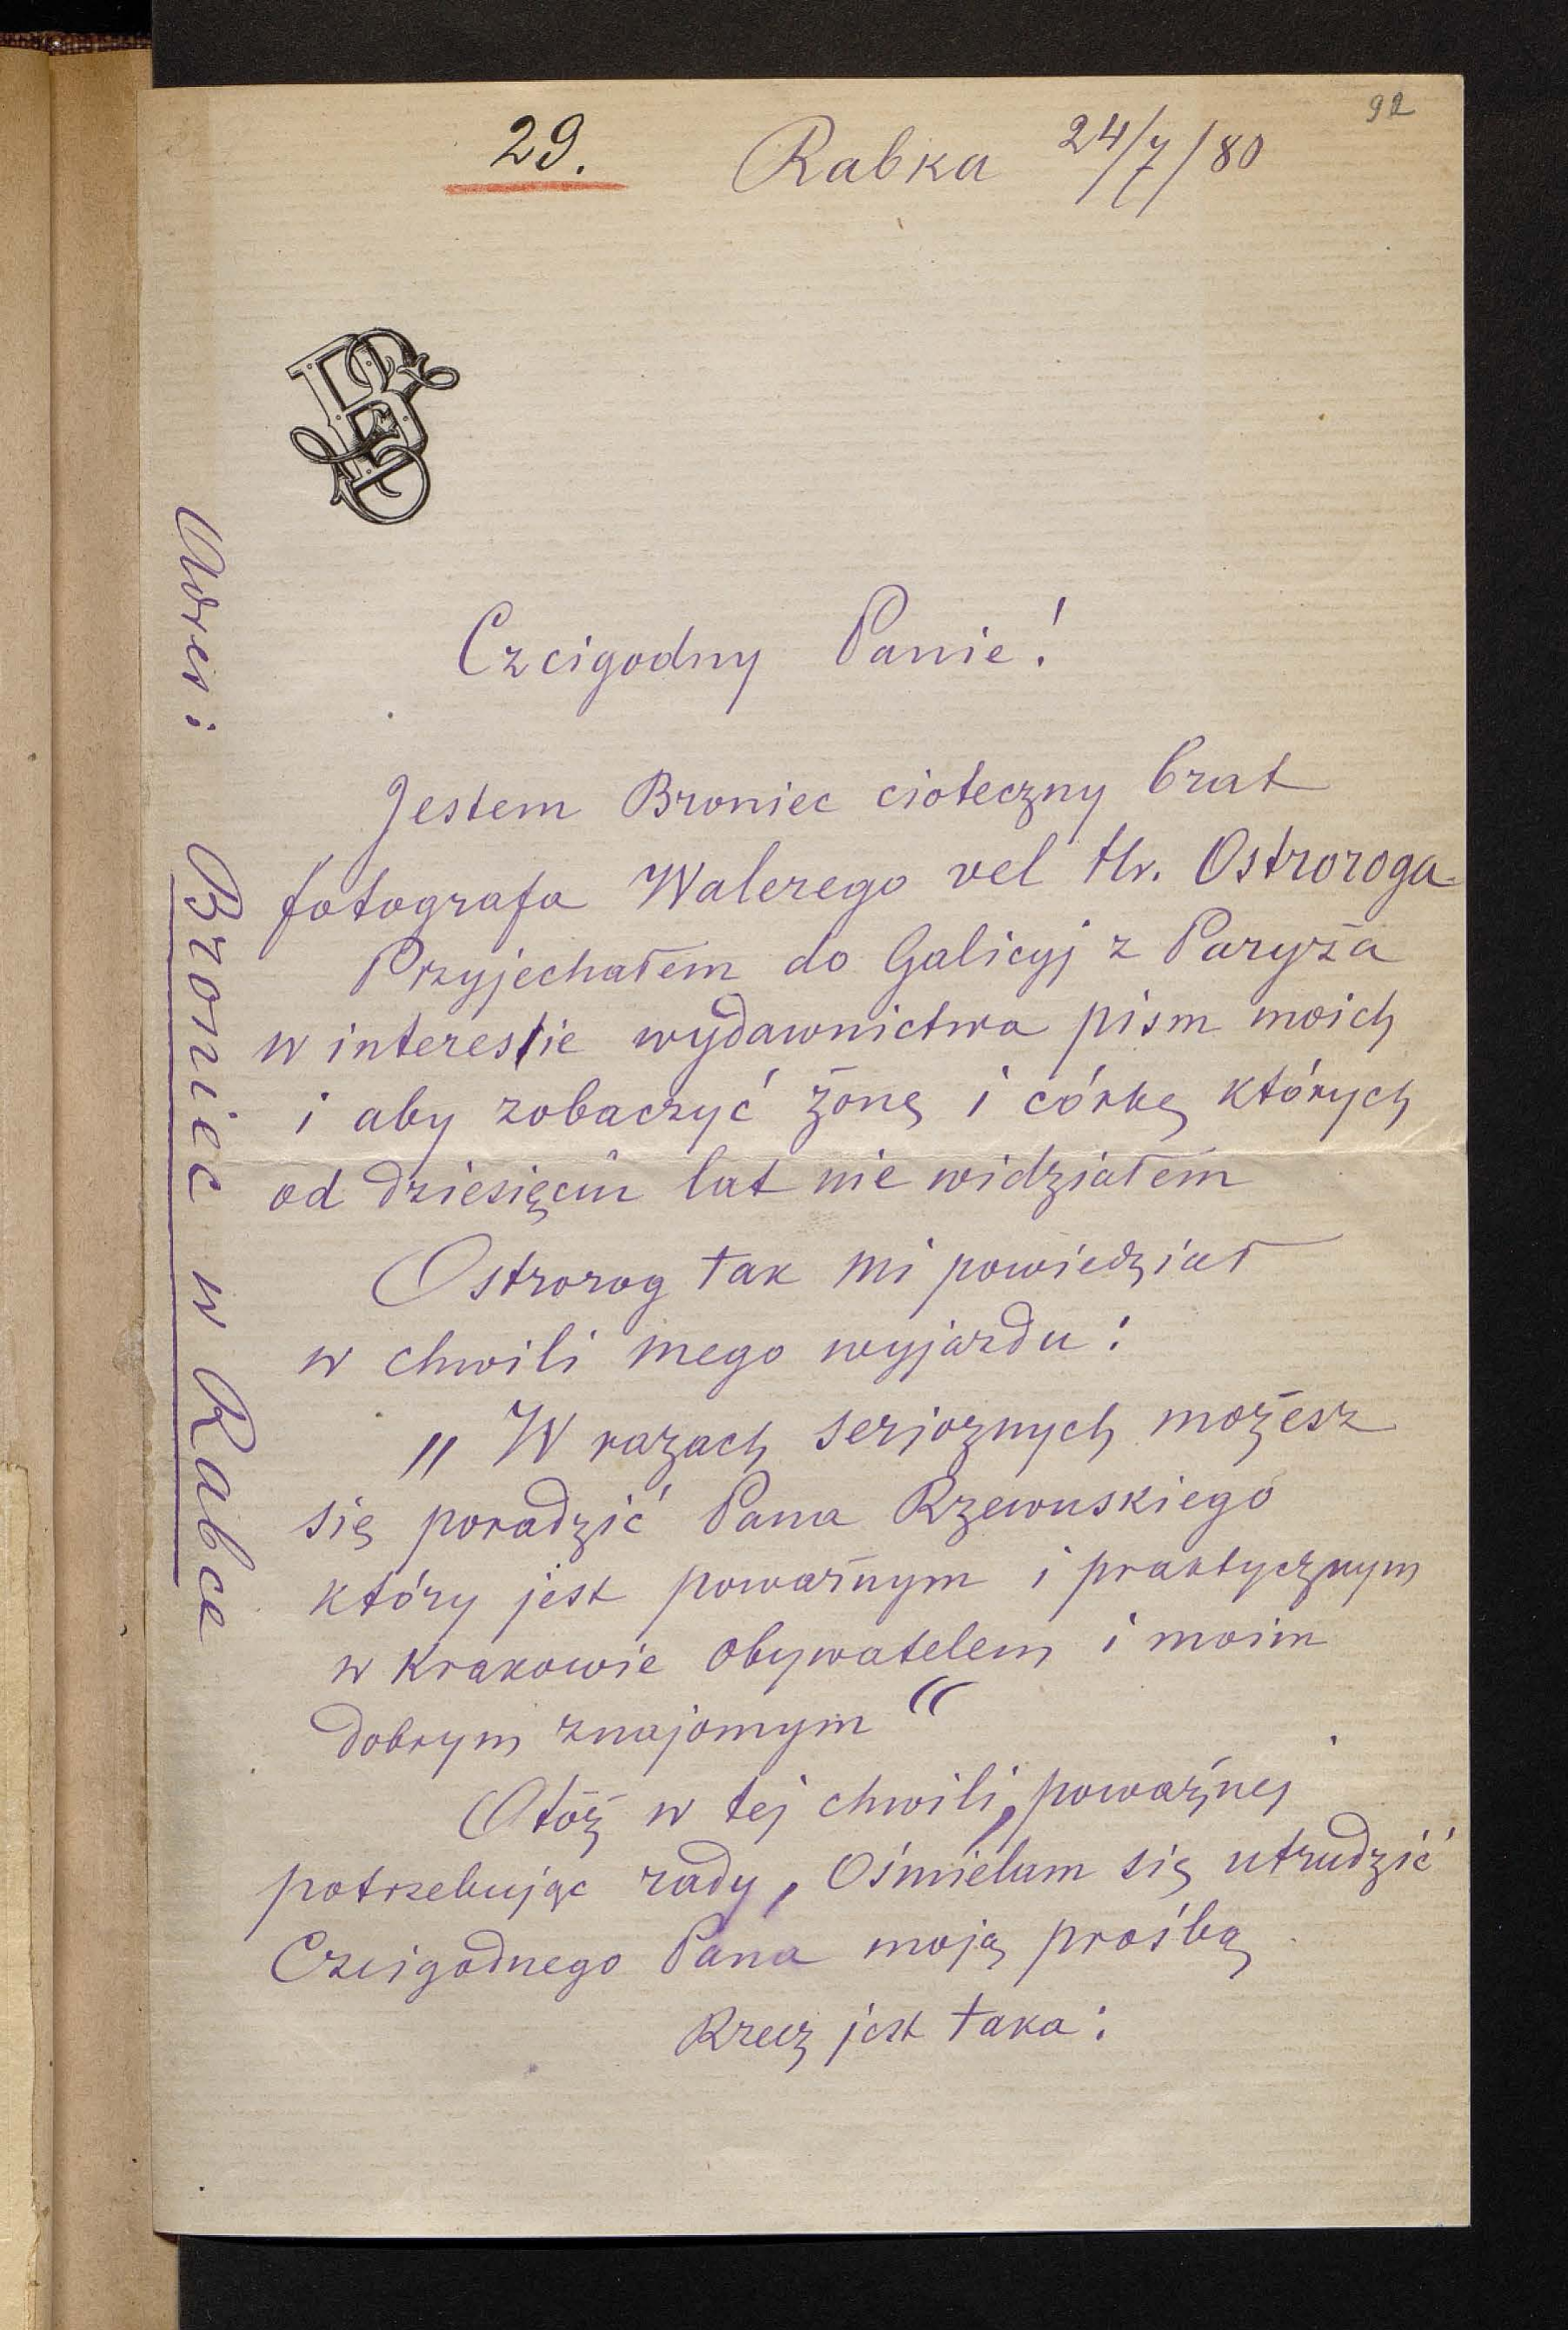 92
29. Rabka 24/7/80
Czcigodny Panie!
Jestem Broniec cioteczny brat
fotografa Walerego vel Hr. Ostroroga
Przyjechałem do Galicyj z Paryża
w interessie wydawnictwa pism moich
i aby zobaczyć żonę i córkę których
od dziesięciu lat nie widziałem
Ostrorog tak mi powiedział
w chwili mego wyjazdu:
„W razach serjoznych możesz
się poradzić Pana Rzewuskiego
który jest poważnym i praktycznym
w Krakowie obywatelem i moim
dobrym znajomym“
Otóż w tej chwili, poważnej
potrzebując rady, Ośmielam się utrudzić
Czcigodnego Pana moją prośbą
Rzecz jest taka:
Adres: Broniec w Rabce